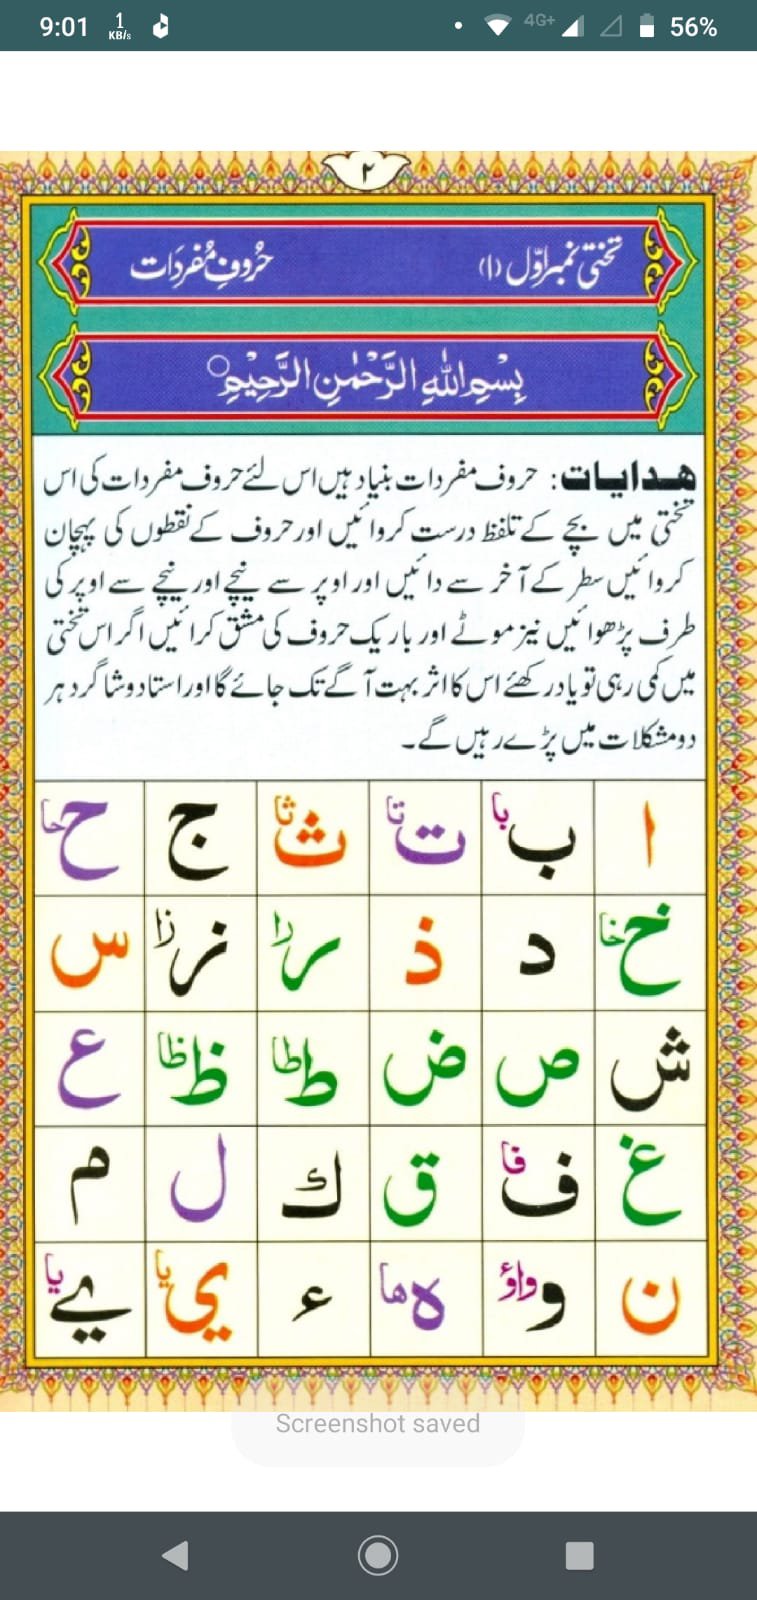 9:01 1 KB/s 4G+ 56%
۲
تختی نمبر اوّل (۱) حُرُوفِ مُفرَدَات
بِسْمِ اللّٰهِ الرَّحْمٰنِ الرَّحِیْمِ
هدایات: حروف مفردات بنیاد ہیں اس لئے حروف مفردات کی اس
تختی میں بچے کے تلفظ درست کروائیں اور حروف کے نقطوں کی پہچان
کروائیں سطر کے آخر سے دائیں اور اوپر سے نیچے اور نیچے سے اوپر کی
طرف پڑھوائیں نیز موٹے اور باریک حروف کی مشق کرائیں اگر اس تختی
میں کمی رہی تو یاد رکھئے اس کا اثر بہت آگے تک جائے گا اور استاد و شاگرد ہر
دو مشکلات میں پڑے رہیں گے۔
ا ب با ت تا ث ثا ج ح حا
خ خا د ذ ر را ز زا س
ش ص ض ط طا ظ ظا ع
غ ف فا ق ك ل م
ن و واؤ ه ها ء ي یا ے یا
Screenshot saved